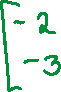 -2
-3